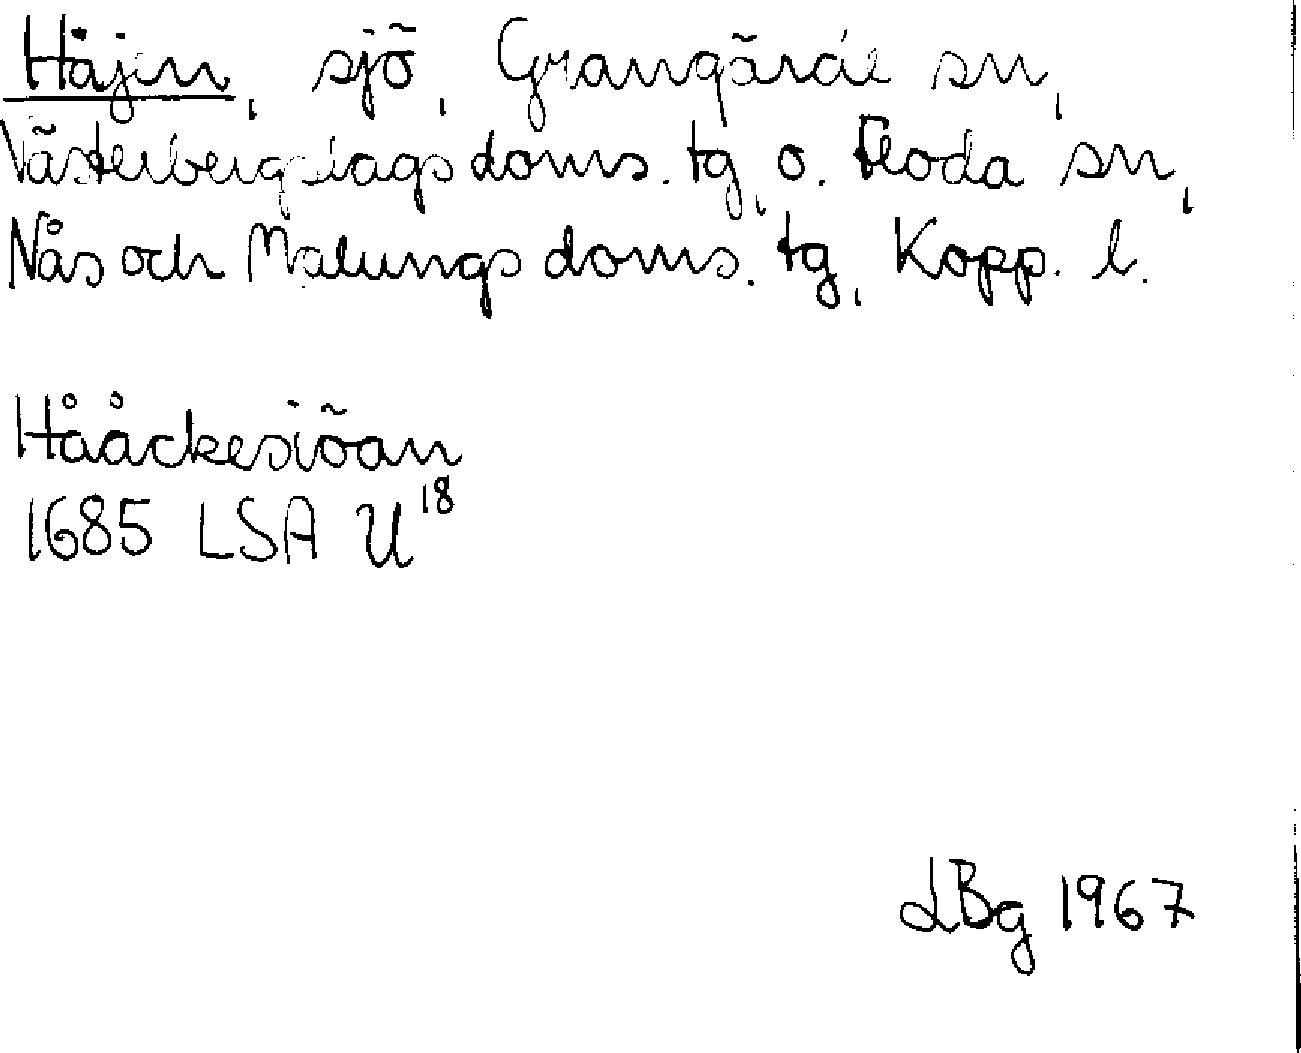 Håjen, sjö, Grangärde sn,
Västerbergslags doms. tg, o. Floda sn,
Nås och Malungs doms. tg, Kopp. l.
Hååckesiöan
1685 LSA U18
LBg 1967